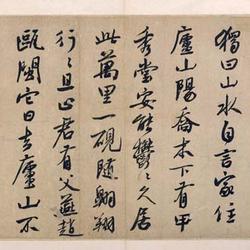 獨曰山水自言家住
廬山陽喬木下有甲
秀堂安能鬱々久居
此萬里一硯隨翱翔
行々且止君有父燕趙
甌閩它日去廬山不